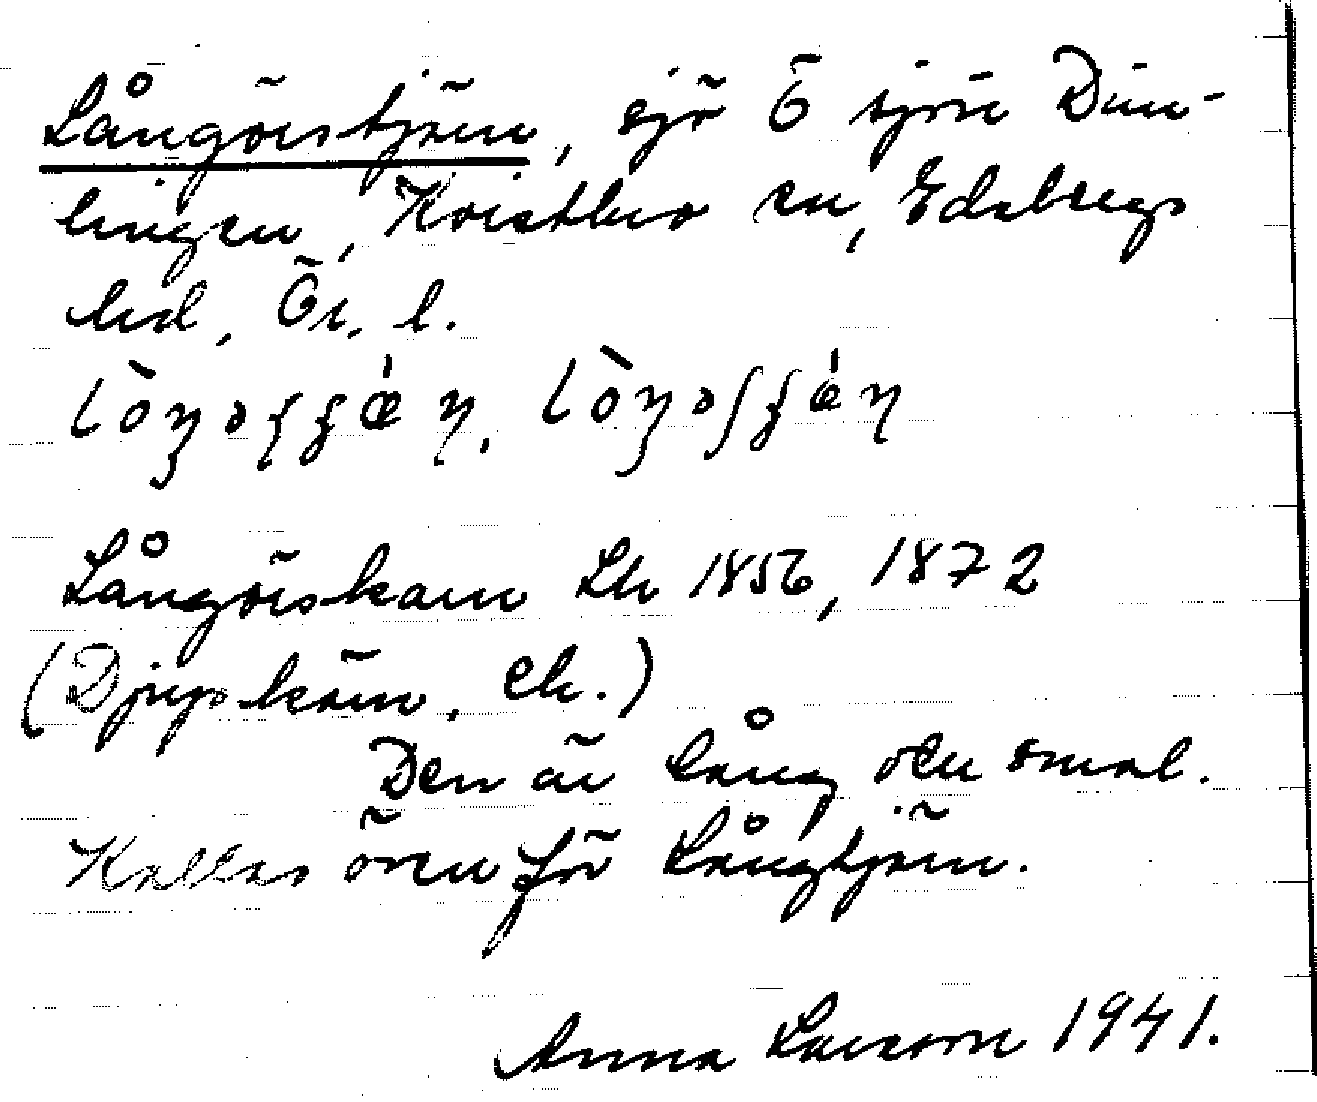 Långörstjärn, sjö Ö sjön Dun-
lingen, Kvistbro sn, Edsbergs
hd, Ör. l.
Långörskärn Lk 1856, 1872
(Djupskärn, ek.)
Den är lång och smal.
Kallas även för Långtjärn.
Anna Larsson 1941.